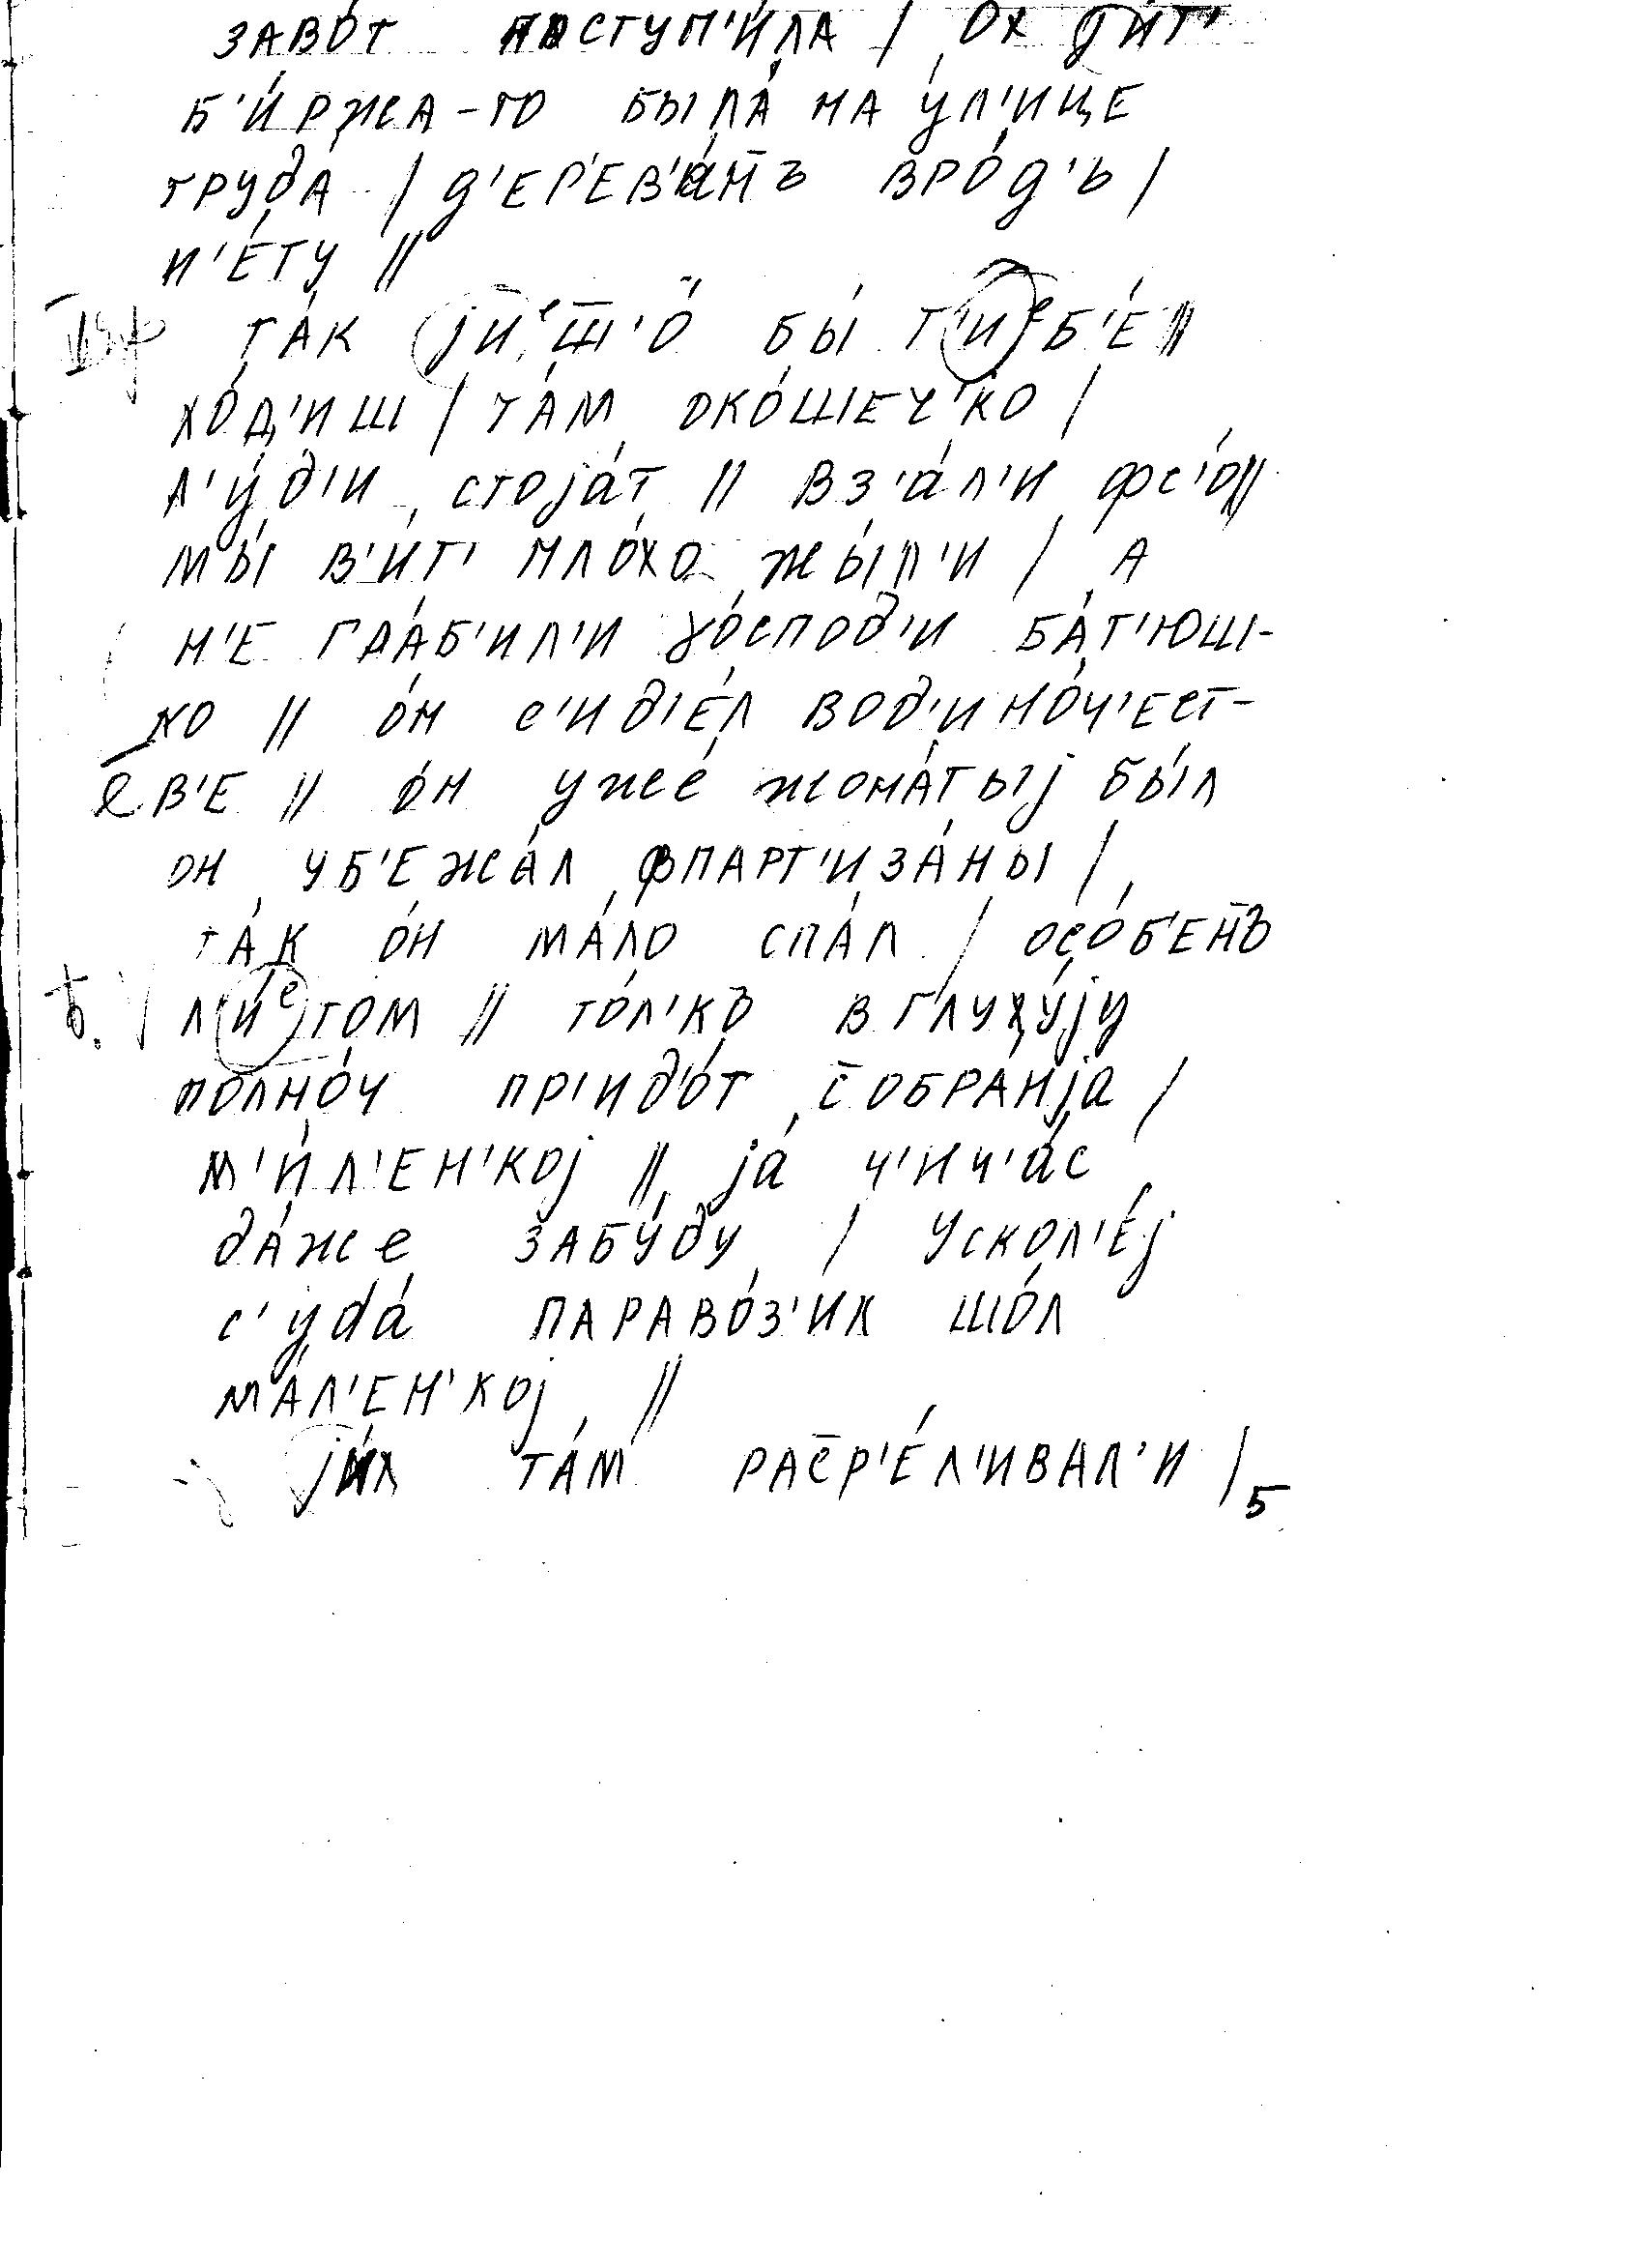 ЗАВО́Т ПОСТУП'И́ЛА / ОХ Д'И́Т'
Б'И́РЖА-ТО БЫЛА́ НА У́Л'ИЦЕ
ТРУДА́ / Д'ЕР'ЕВ'А́Н̄Ъ ВРО́Д'Ь /
Н'Е́ТУ //
ТА́К јИᵉШ̄'О́ БЫ́ Т'ИᵉБ'Е́ //
ХО́Д'ИШ / ТА́М ОКО́ШЕЧ'КО /
Л'У́Д'И СТОјА́Т // ВЗ'А́Л'И ФС'О́ //
МЫ́ В'ИТ' ПЛО́ХО ЖЫ́Л'И / А
Н'Е ГРА́Б'ИЛ'И γО́СПОД'И БА́Т'ЮШ-
КО // О́Н С'ИД'Е́Л ВОД'ИНО́Ч'ЕСТ-
В'Е // О́Н УЖЕ́ ЖОНА́ТЫј БЫ́Л
ОН УБ'ЕЖА́Л ФПАРТ'ИЗА́НЫ /
ТА́К О́Н МА́ЛО СПА́Л / ОСО́Б'ЕН̄Ъ
Л'И́ᵉТОМ // ТО́Л'КЪ В ГЛУХУ́јУ
ПОЛНО́Ч ПР'ИД'О́Т С̄ОБРА́НјА /
М'И́Л'ЕН'КОј // јА́ Ч'ИЧ'А́С
ДА́ЖЕ ЗАБУ́ДУ / УСКОЛ'Е́ј
С'УДА́ ПАРАВО́З'ИК ШО́Л
МА́Л'ЕН'КОј //
јИ́Х ТА́М РАС̄Р'Е́Л'ИВАЛ'И /
5